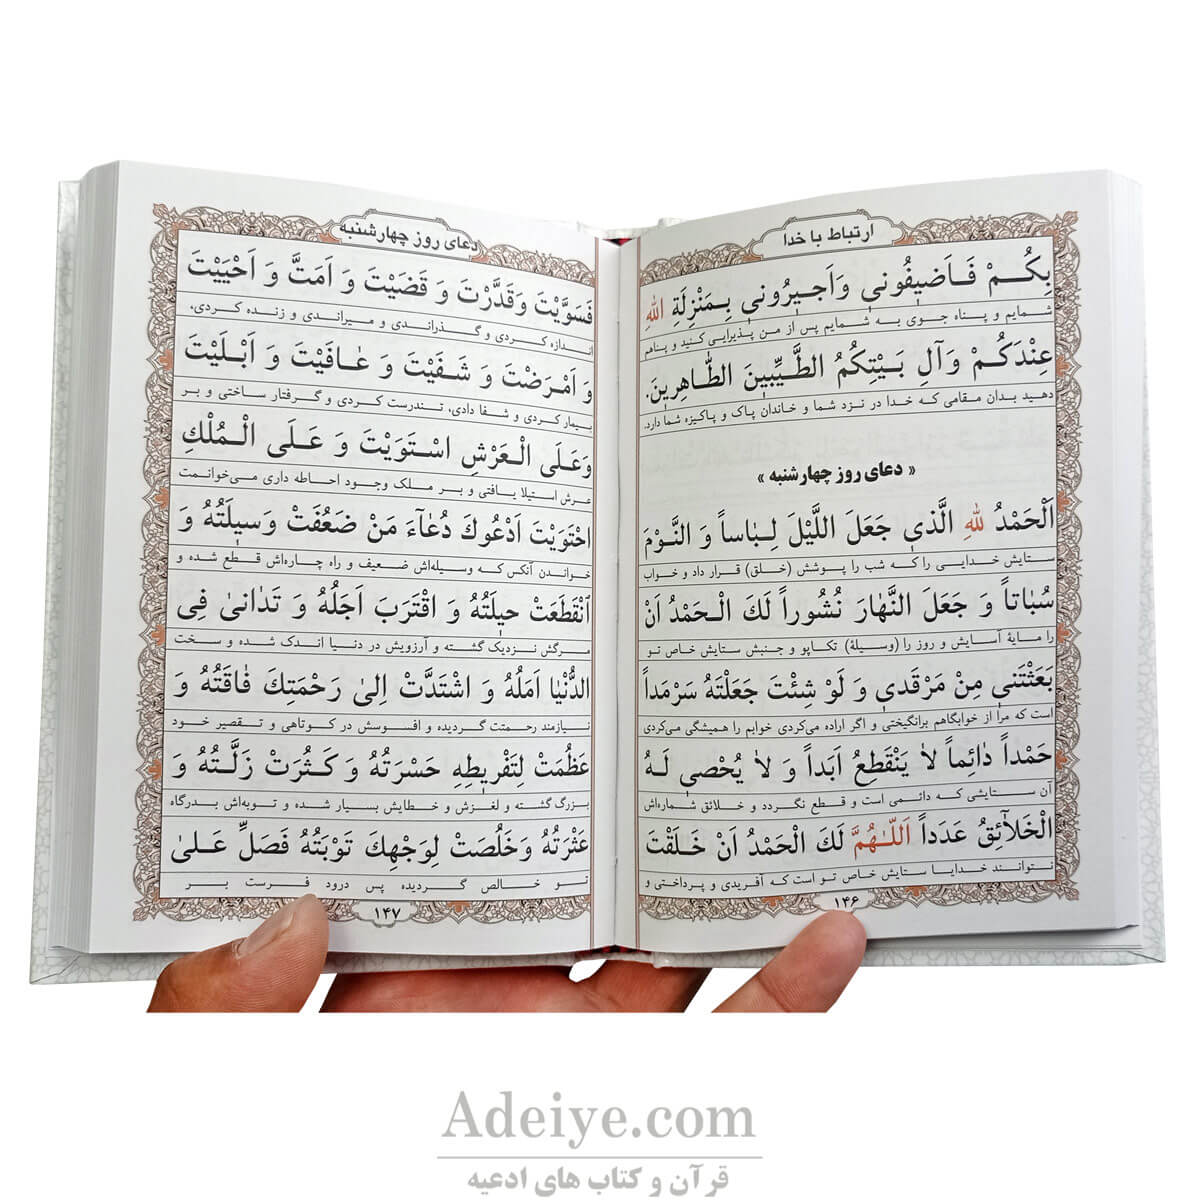 ارتباط با خدا
بِكُمْ فَاَضيفُوني وَاَجيرُوني بِمَنْزِلَةِ اللهِ
شمایم و پناه جوی به شمایم پس از من پذیرایی کنید و پناهم
عِنْدَكُمْ وَآلِ بَيْتِكُمُ الطَّيِّبينَ الطّاهِرينَ.
دهید بدان مقامی که خدا در نزد شما و خاندان پاک و پاکیزه شما دارد.
« دعای روز چهارشنبه »
اَلْحَمْدُ للهِ الَّذي جَعَلَ اللَّيْلَ لِباساً وَ النَّوْمَ
ستایش خدایی را که شب را پوشش (خلق) قرار داد و خواب
سُباتاً وَ جَعَلَ النَّهارَ نُشُوراً لَكَ الْحَمْدُ اَنْ
را مایهٔ آسایش و روز را (وسیلهٔ) تکاپو و جنبش ستایش خاص تو
بَعَثْتَني مِنْ مَرْقَدي وَ لَوْ شِئْتَ جَعَلْتَهُ سَرْمَداً
است که مرا از خوابگاهم برانگیختی و اگر اراده می‌کردی خوابم را همیشگی می‌کردی
حَمْداً دائِماً لا يَنْقَطِعُ اَبَداً وَ لا يُحْصي لَهُ
آن ستایشی که دائمی است و قطع نگردد و خلائق شماره‌اش
الْخَلآئِقُ عَدَداً اَللّهُمَّ لَكَ الْحَمْدُ اَنْ خَلَقْتَ
نتوانند خدایا ستایش خاص تو است که آفریدی و پرداختی و
۱۴۶
دعای روز چهارشنبه
فَسَوَّيْتَ وَقَدَّرْتَ وَ قَضَيْتَ وَ اَمَتَّ وَ اَحْيَيْتَ
اندازه کردی و گذراندی و میراندی و زنده کردی،
وَ اَمْرَضْتَ وَ شَفَيْتَ وَ عافَيْتَ وَ اَبْلَيْتَ
بیمار کردی و شفا دادی، تندرست کردی و گرفتار ساختی و بر
وَعَلَى الْعَرْشِ اسْتَوَيْتَ وَ عَلَى الْمُلْكِ
عرش استیلا یافتی و بر ملک وجود احاطه داری می‌خوانمت
احْتَوَيْتَ اَدْعُوكَ دُعآءَ مَنْ ضَعُفَتْ وَسيلَتُهُ وَ
خواندن آنکس که وسیله‌اش ضعیف و راه چاره‌اش قطع شده و
انْقَطَعَتْ حيلَتُهُ وَ اقْتَرَبَ اَجَلُهُ وَ تَدانى فِي
مرگش نزدیک گشته و آرزویش در دنیا اندک شده و سخت
الدُّنْيا اَمَلُهُ وَ اشْتَدَّتْ اِلى رَحْمَتِكَ فاقَتُهُ وَ
نیازمند رحمتت گردیده و افسوسش در کوتاهی و تقصیر خود
عَظُمَتْ لِتَفْريطِهِ حَسْرَتُهُ وَ كَثُرَتْ زَلَّتُهُ وَ
بزرگ گشته و لغزش و خطایش بسیار شده و توبه‌اش بدرگاه
عَثْرَتُهُ وَخَلُصَتْ لِوَجْهِكَ تَوْبَتُهُ فَصَلِّ عَلى
تو خالص گردیده پس درود فرست بر
۱۴۷
Adeiye.com
قرآن و کتاب های ادعیه